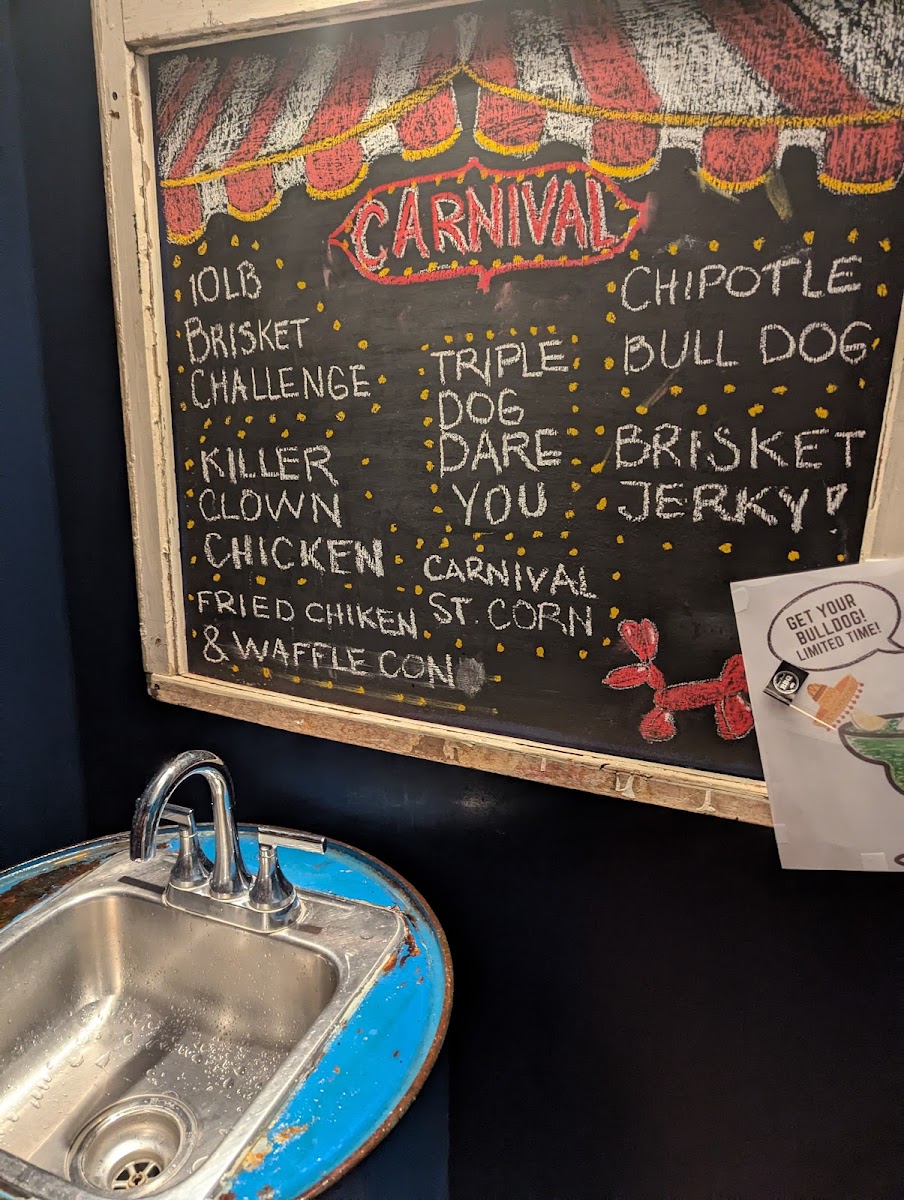 CARNIVAL
10LB
BRISKET
CHALLENGE
KILLER
CLOWN
CHICKEN
FRIED CHIKEN
& WAFFLE CON
TRIPLE
DOG
DARE
YOU
CARNIVAL
ST. CORN
CHIPOTLE
BULL DOG
BRISKET
JERKY!
GET YOUR
BULLDOG!
LIMITED TIME!